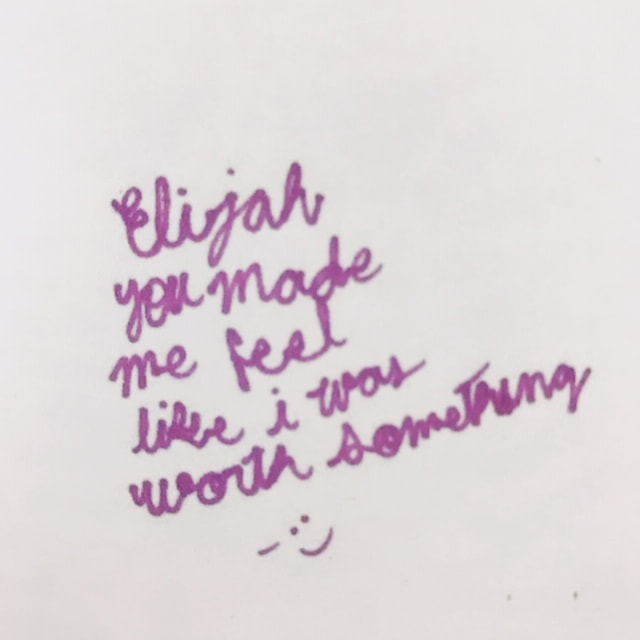 Elijah
you made
me feel
like i was
worth something
-:)